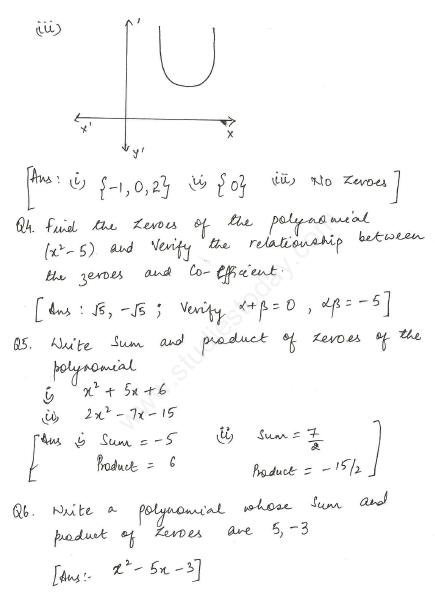 (iii)
'
x'
x
y'
[Ans: (i) {-1, 0, 2} (ii) {0} (iii) No Zeroes]
Q4. Find the zeroes of the polynomial
(x² - 5) and Verify the relationship between
the zeroes and Co-efficient.
[Ans: √5, -√5 ; Verify α+β = 0 , αβ = -5]
Q5. Write Sum and product of zeroes of the
polynomial
i) x² + 5x + 6
ii) 2x² - 7x - 15
[Ans i) Sum = -5 (ii) Sum = 7/2
Product = 6 Product = -15/2]
Q6. Write a polynomial whose sum and
product of zeroes are 5, -3
[Ans:- x² - 5x - 3]
www.studiestoday.com